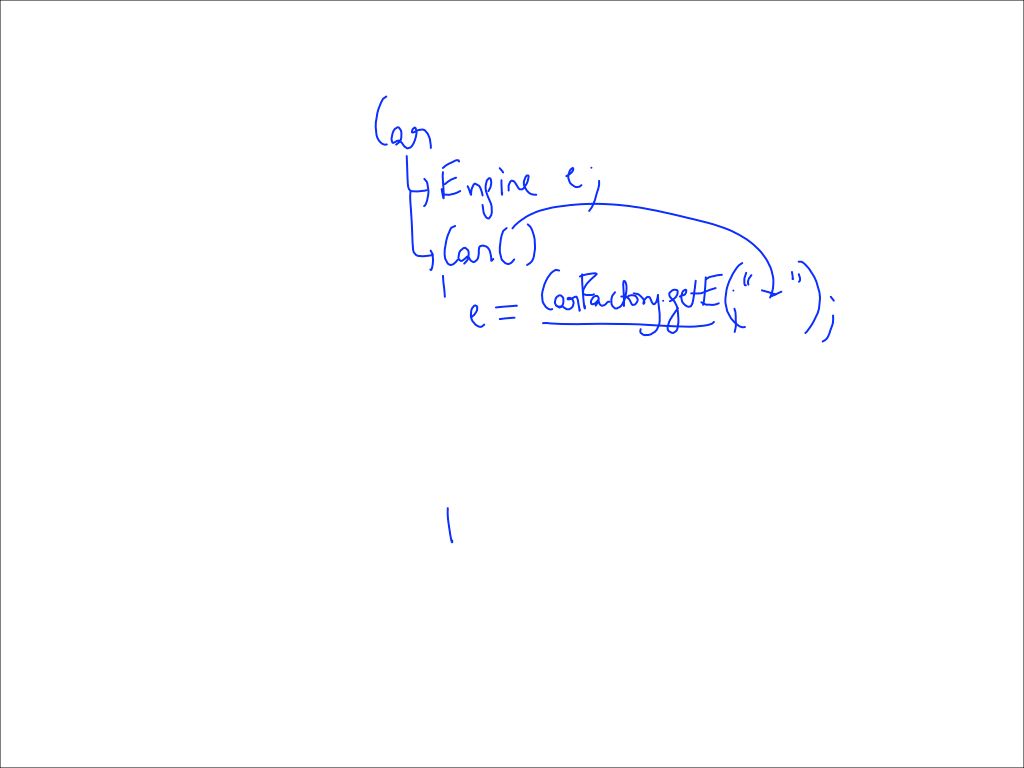 Car
Engine e;
Car()
e = CarFactory.getE(" ");